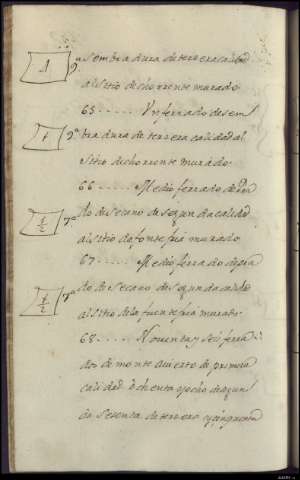 1 9ª sembradura de tercera calidad
al sitio dicho rronte murado
65 ...... Un ferrado de sem
1 9ª bradura de tercera calidad al
sitio dicho rronte murado.
66 ...... Medio ferrado de
1/2 7ª do de secano de segunda calidad
al sitio da fonte fria murado
67 ..... Medio ferrado de
1/2 7ª do de secano de segunda calidad
al sitio de la fuente fria murado
68 ..... Noventa y seis ferra
dos de monte avierto de primera
calidad ochenta y ocho de segun
da sesenta de tercera y cinquenta